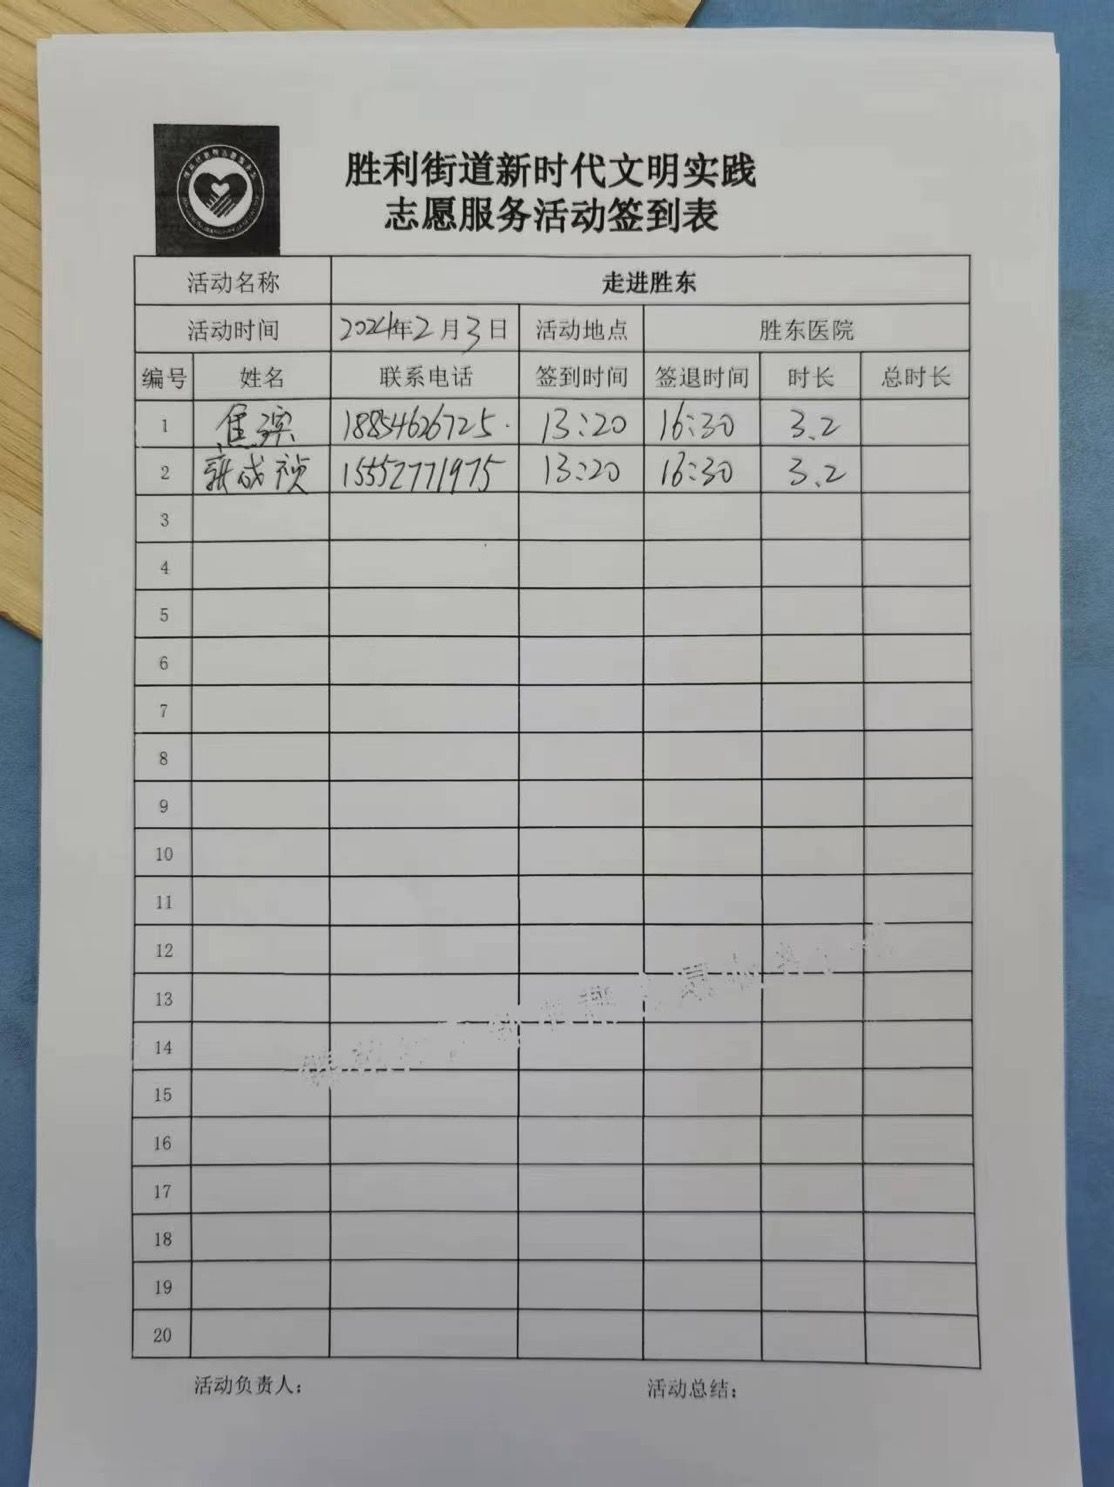 胜利街道新时代文明实践
志愿服务活动签到表
活动名称 走进胜东
活动时间 2024年2月3日 活动地点 胜东医院
编号 姓名 联系电话 签到时间 签退时间 时长 总时长
1 焦滨 18854626725. 13:20 16:30 3.2
2 成祯 15552771975 13:20 16:30 3.2
3
4
5
6
7
8
9
10
11
12
13
14
15
16
17
18
19
20
活动负责人: 活动总结: